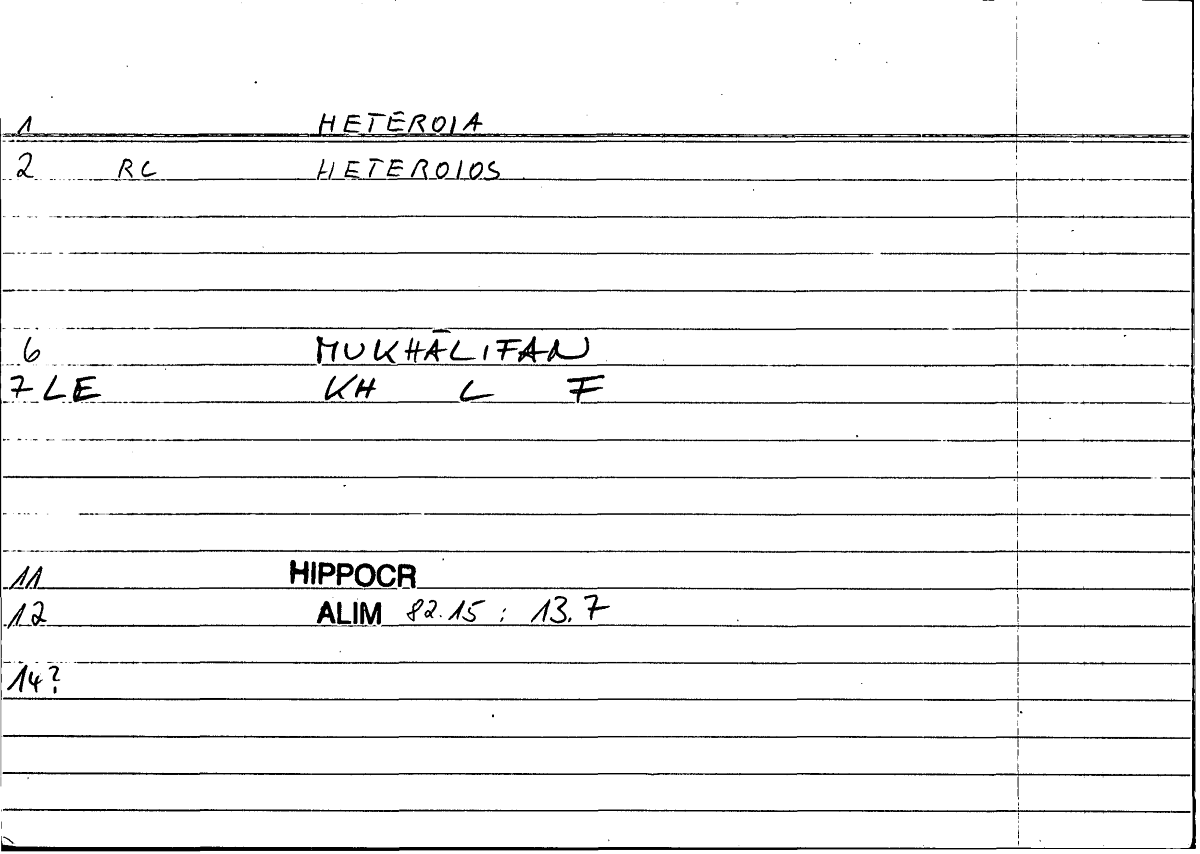 1 HETĒROIA
2 RC HETEROIOS
6 MUKHĀLIFAN
7 LE KH L F
11 HIPPOCR
12 ALIM 82.15 : 13.7
14?